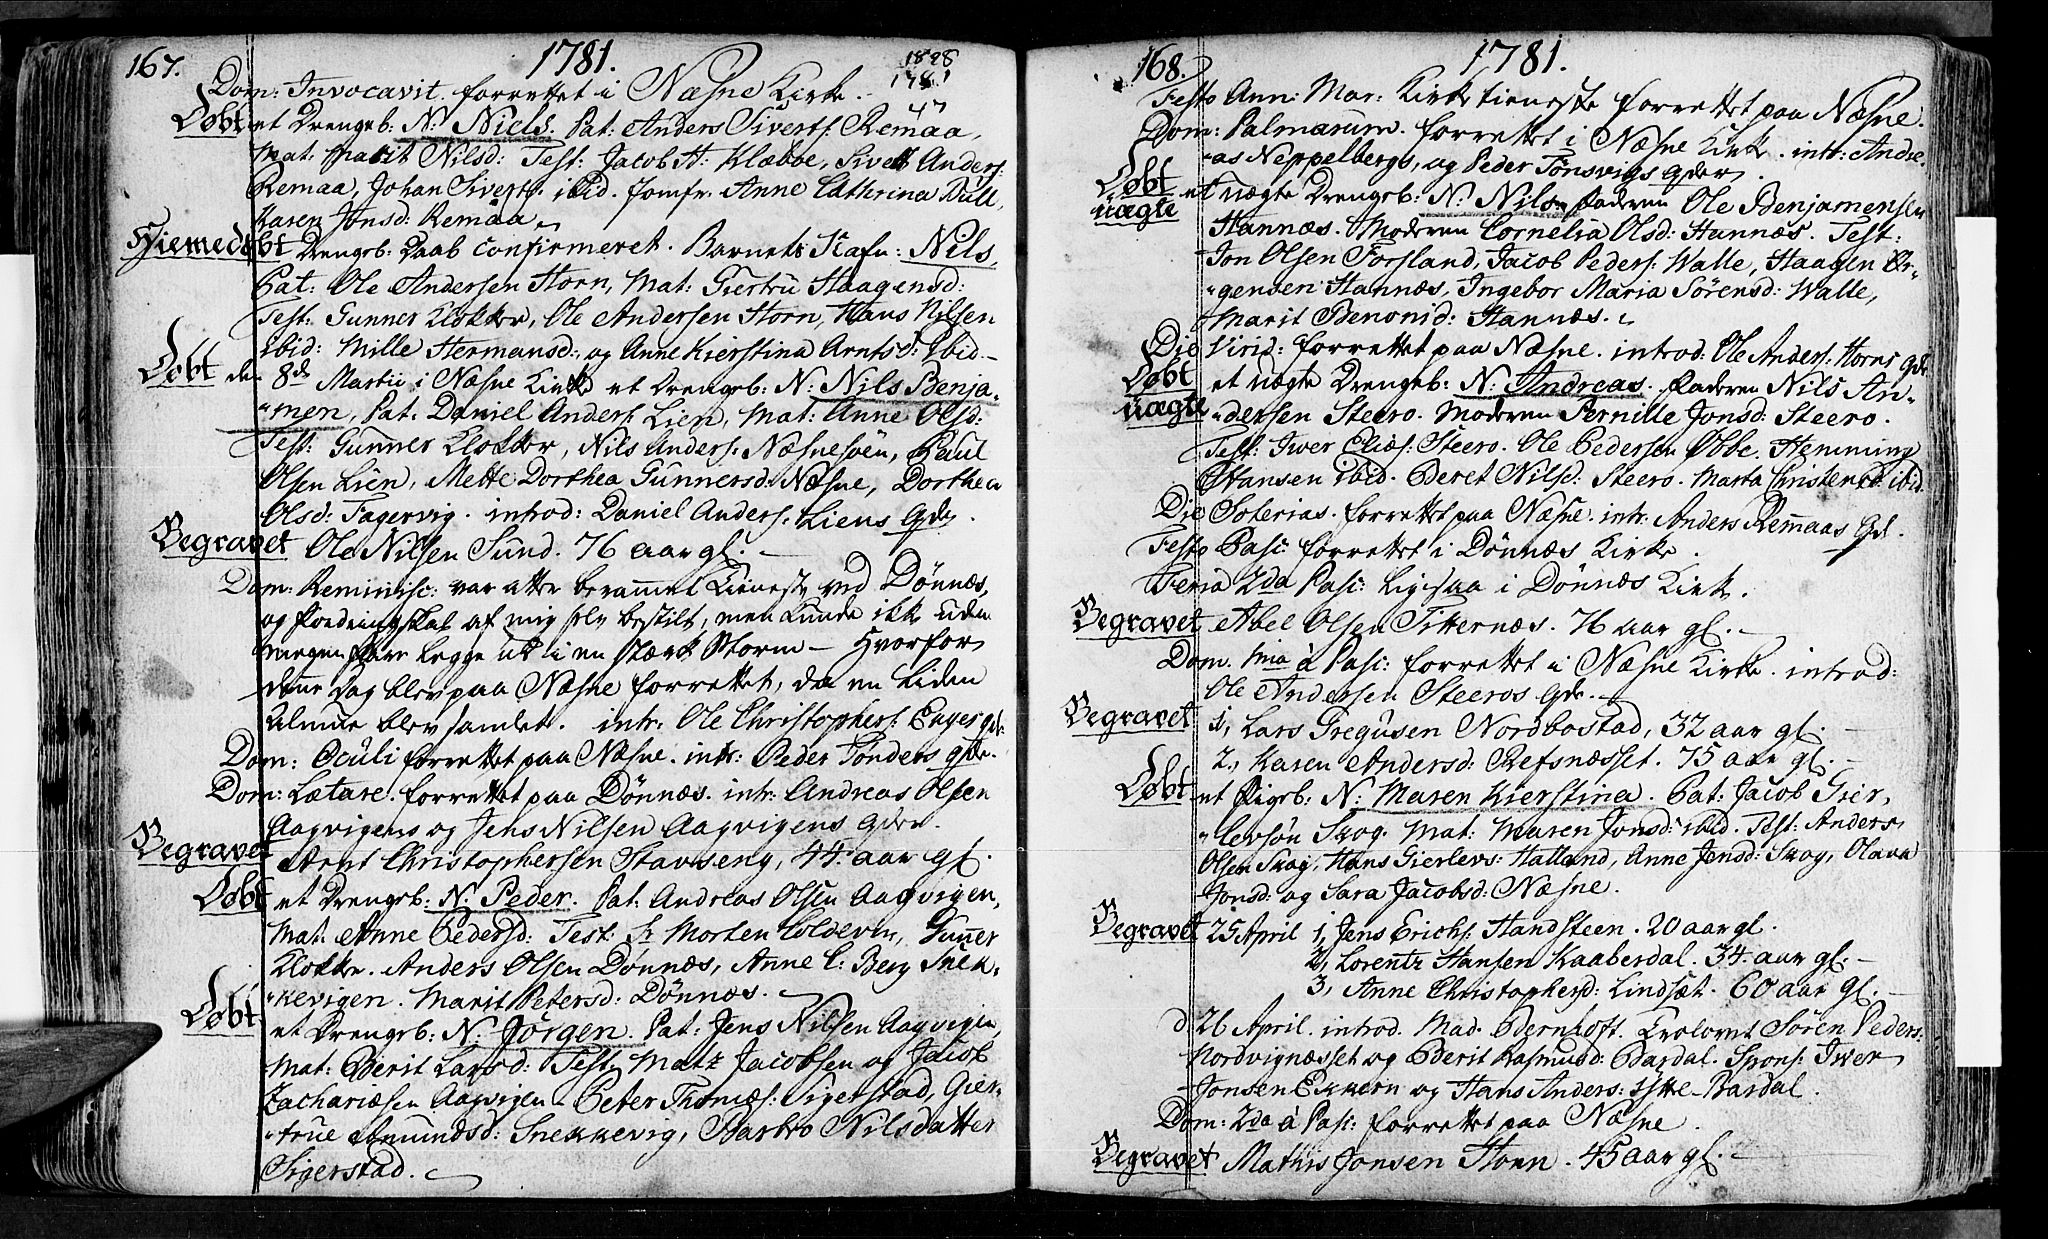 167.
1781.
1828
1781
47
Dom: Invocavit. forrettet i Næsne Kirke.
Døbt et Drengeb: N: Niels. Pat: Anders Siverts: Remaa,
Mat: Marit Nilsd: Test: Jacob H: Klæboe, Sivert Anders:
Remaa, Johan Siverts: ibid. Jomfr: Anne Cathrina Bull,
Karen Jonsd: Remaa.
Hiemedøbt Drengeb: Daab confirmeret. Barnets Nafn: Nils,
Pat: Ole Andersen Horn, Mat: Giertru Haagensd:
Test: Gunner Klokker, Ole Andersen Horn, Hans Nilsen
ibid: Mille Hermansd: og Anne Kierstina Arntsd: ibid
Døbt den 8de Martii i Næsne Kirke et Drengeb: N: Nils Benja-
"men, Pat: Daniel Anders: Lien, Mat: Anne Olsd:
Test: Gunner Klokker, Nils Anders: Næsnesøen, Paul
Olsen Lien, Mette Dorthea Gunnersd: Næsne, Dorthea
Olsd: Fagervig. introd: Daniel Anders: Liens Qde.
Begravet Ole Nilsen Sund. 76 aar gl.
Dom: Reminisc: var atter berammet Tieneste ved Dønnæs,
og Fordringskab af mig selv bestilt, men kunde ikke uden
megen Fare legge ud i en stærk Storm - Hvorfor
denne Dag blev paa Næsne forrettet, da en liden
Almue blev samlet. intr: Ole Christophers: Enges Qde:
Dom: Oculi forrettet paa Næsne. intr: Peder Tønders Qde.
Dom: Lætare. forrettet paa Dønnæs. intr: Andreas Olsen
Aagvigens og Jens Nilsen Aagvigens Qder.
Begravet Arnt Christophersen Stavseng, 44 aar gl.
Døbt et Drengeb: N: Peder. Pat: Andreas Olsen Aagvigen,
Mat: Anne Pedersd: Test: Sr Morten Coldevin, Gunner
Klokker. Anders Olsen Dønnæs, Anne C: Berg Snek-
"kevigen. Marit Petersd: Dønnæs.
Døbt et Drengeb: N: Jørgen. Pat: Jens Nilsen Aagvigen,
Mat: Berit Larsd: Test: Matz Jacobsen og Jacob
Zachariæsen Aagvigen. Peter Thomæs: Sigerstad, Gier-
"true Amundsd: Snekkevig, Barbro Nilsdatter
Sigerstad.
168.
1781.
Festo Ann: Mar: Kirketieneste forrettet paa Næsne.
Dom: Palmarum. forrettet i Næsne Kirke. intr: Andre-
"as Neppelbergs, og Peder Tønsvigs Qder.
Døbt uægte et uægte Drengeb: N: Nils. Faderen Ole Benjamensen
Hannæs. Moderen Cornelia Olsd: Hannæs. Test:
Jon Olsen Forsland, Jacob Peders: Walle, Haagen Ør-
"gensen Hannæs, Ingebor Maria Sørensd: Walle,
Marit Benonid: Hannæs.
Die Virid: forrettet paa Næsne. introd: Ole Anders: Horns Qde
Døbt uægte et uægte Drengeb: N: Andreas. Faderen Nils An-
"dersen Steero. Moderen Pernille Jonsd: Steero.
Test: Iwer Eliæs: Steero. Ole Pedersen Øbbe. Hemming
Hansen ibid. Beret Nilsd: Steero. Marta Christensd: ibid.
Die Soterias. forrettet paa Næsne. intr: Anders Remaas Qd.
Festo Pasc: forrettet i Dønnæs Kirke.
Feria 2da Pasc: Ligesaa i Dønnæs Kirke.
Begravet Abel Olsen Titernæs. 76 aar gl.
Dom. 1ma à Pasc: forrettet i Næsne Kirke. introd:
Ole Andersen Steeros Qde.
Begravet 1, Lars Gregusen Nordbostad, 32 aar gl.
2, Karen Andersd: Refsnæsset. 75 aar gl.
Døbt et Pigeb: N: Maren Kierstina. Pat: Jacob Gier-
"levsøn Skog. Mat: Maren Jonsd: ibid. Test: Anders
Olsen Skog, Hans Gierlevs: Hatland, Anne Jensd: Skog, Olava
Jonsd: og Sara Jacobsd: Næsne.
Begravet 25 April 1, Jens Erichs: Handsteen. 20 aar gl.
2, Lorentz Hansen Kaaberdal. 34 aar gl.
3, Anne Christophersd: Lindsæt. 60 aar gl.
d 26 April. introd. Mad. Bernhoft. Trolovet Søren Peders:
Nordvignæsset og Berit Rasmusd: Bardal. Spons: Iwer
Jonsen Ekkern og Hans Anders: Ytte-Bardal.
Dom: 2da à Pasc: forrettet paa Næsne.
Begravet Mathis Jonsen Horn. 45 aar gl.